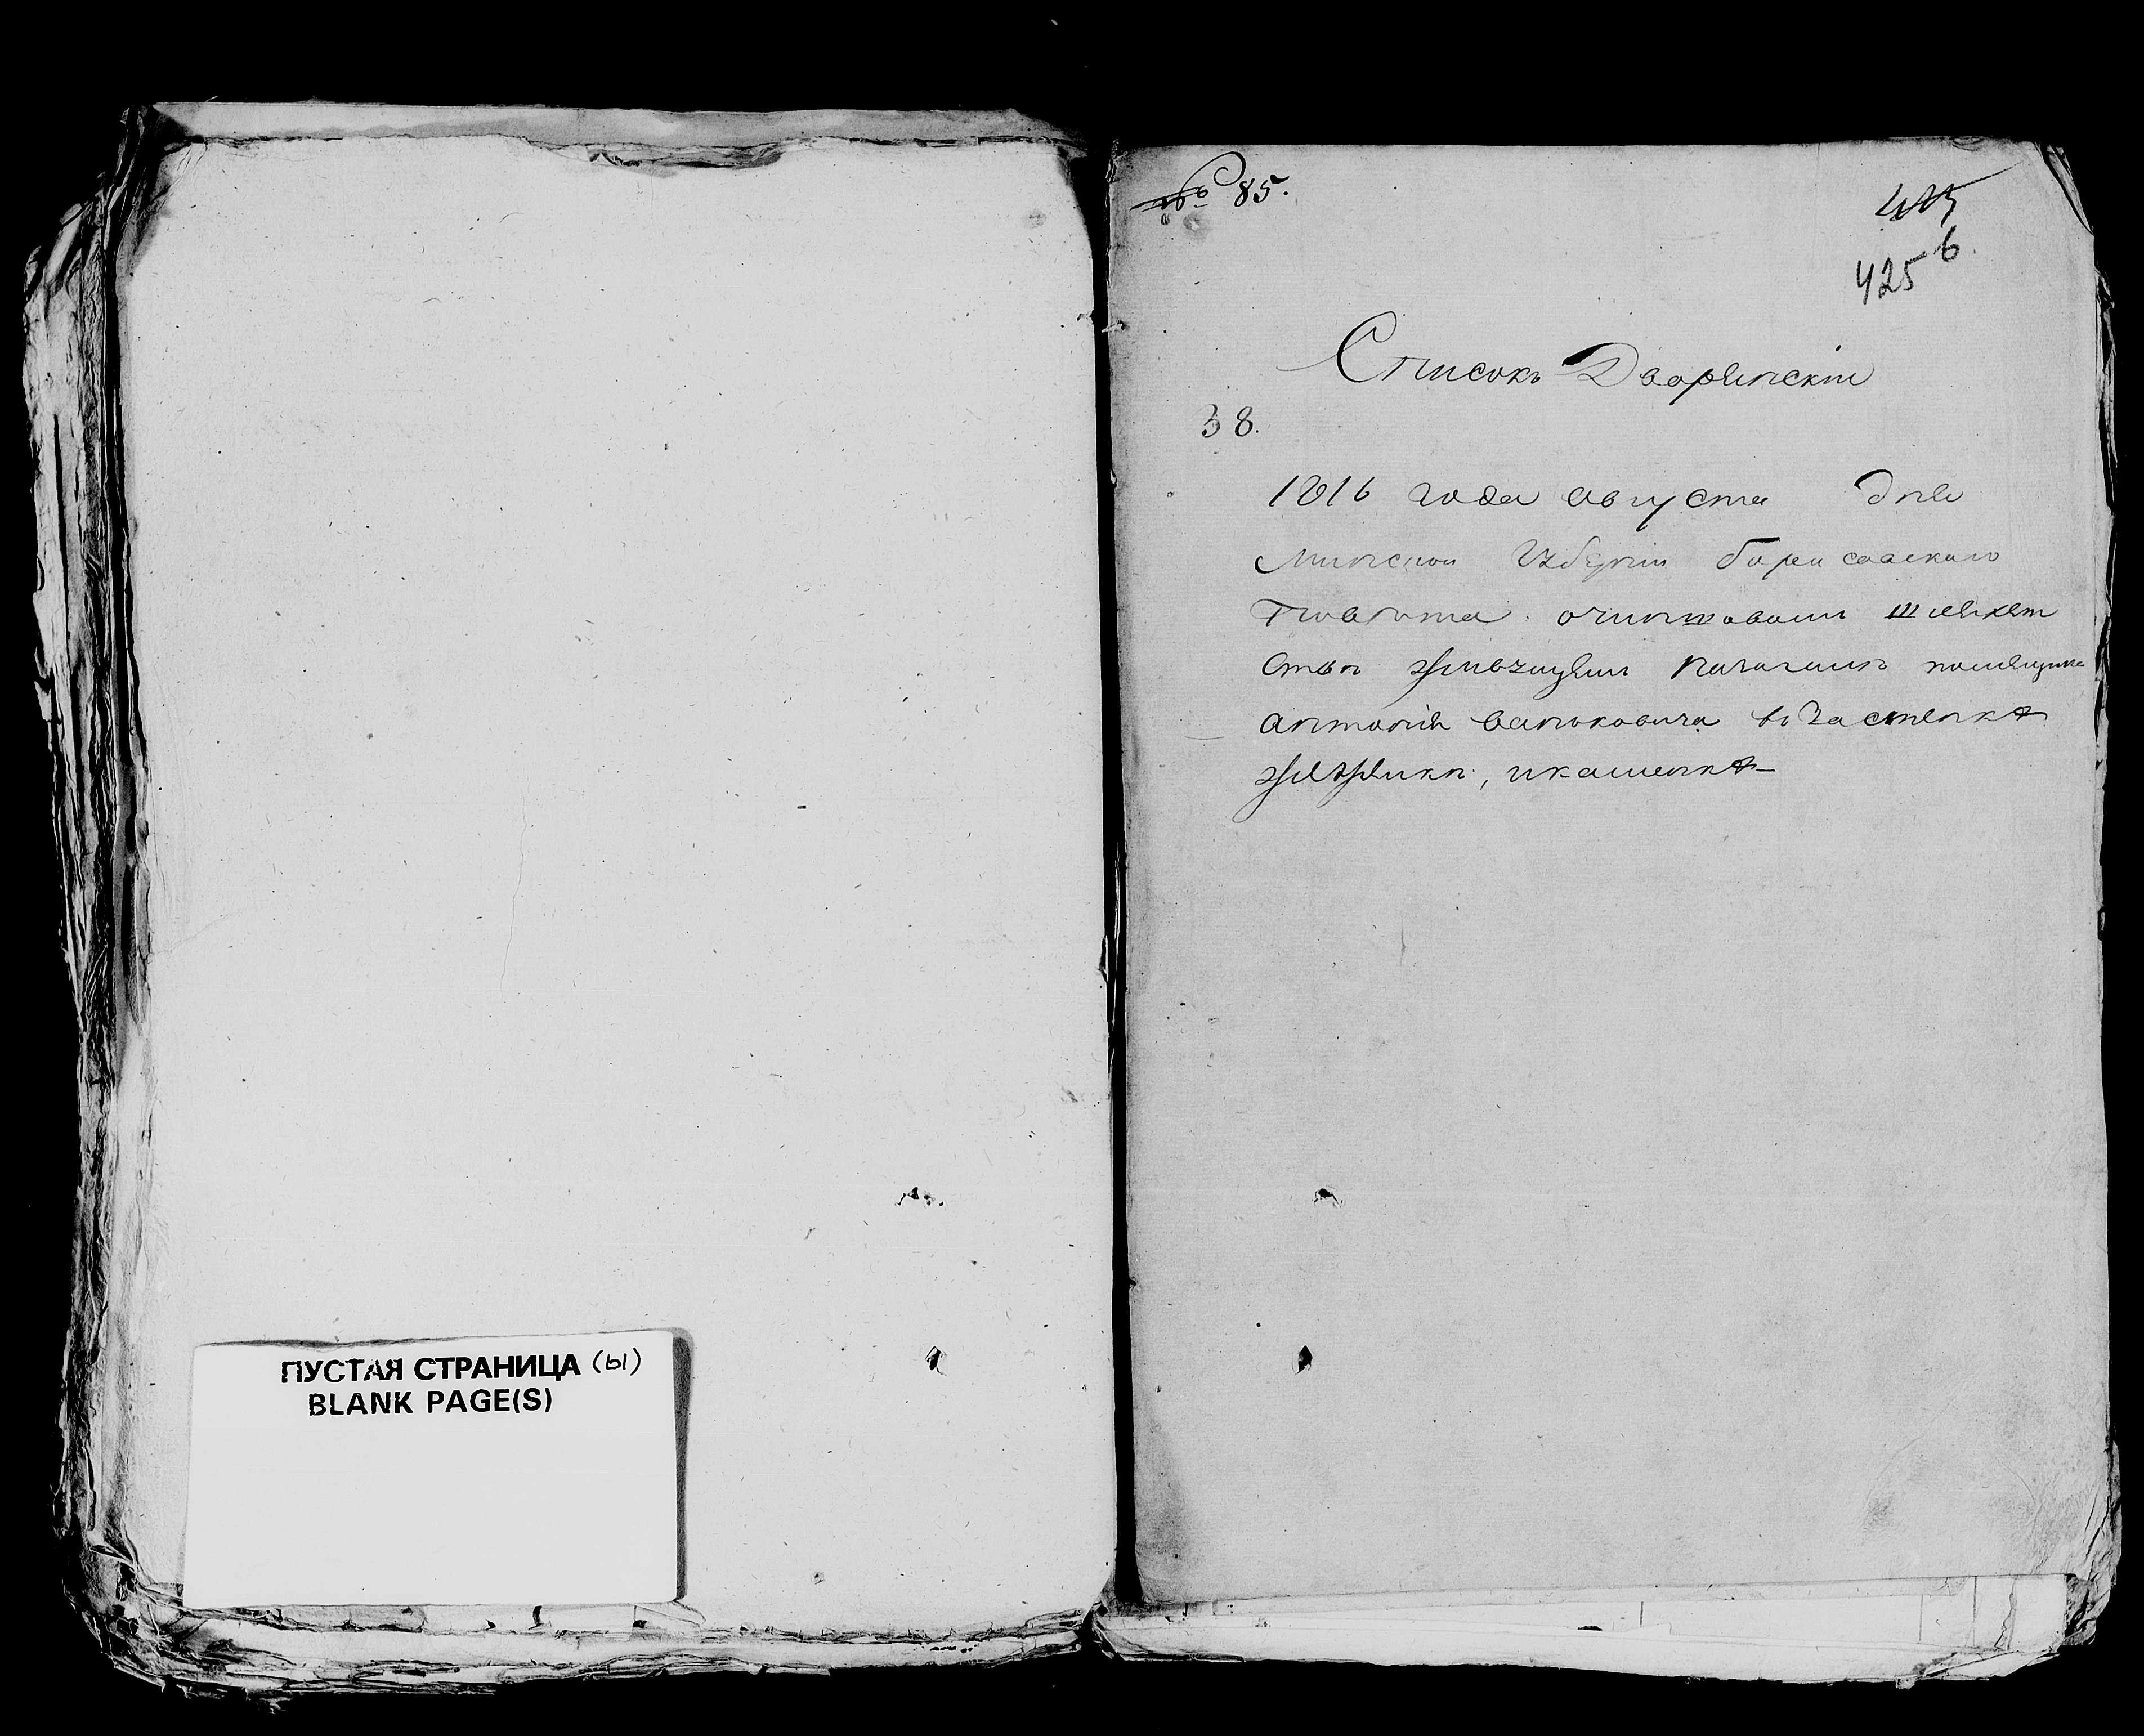 ПУСТАЯ СТРАНИЦА (ы)
BLANK PAGE(S)
№ 85.
425 б
Списокъ Дворянскій
38.
1816 года августа дня
Минской Губерніи борисовскаго
Повѣта о чиншовой шляхет
ствѣ живущей помѣщика
антонія ваньковича въ Застенкѣ